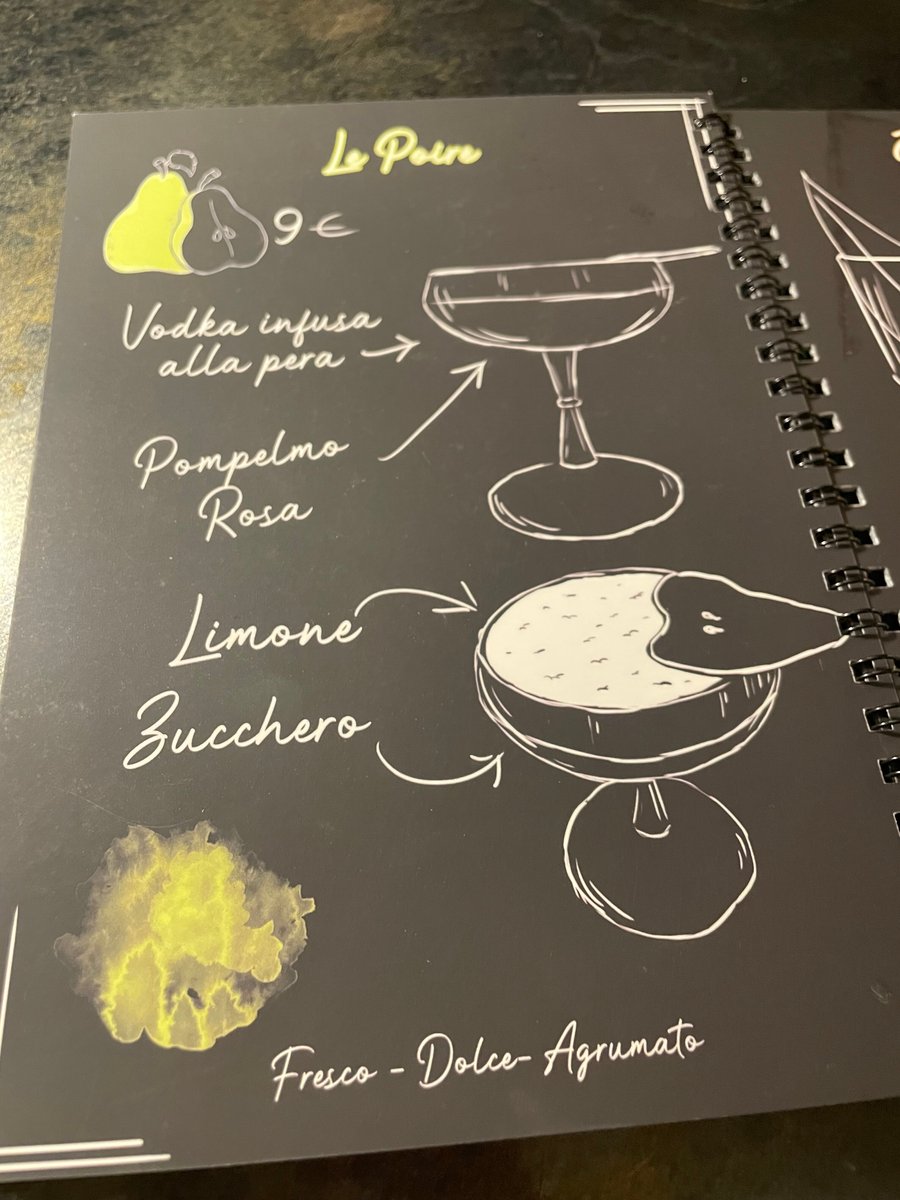 Le Poire
9 €
Vodka infusa
alla pera
Pompelmo
Rosa
Limone
Zucchero
Fresco - Dolce- Agrumato